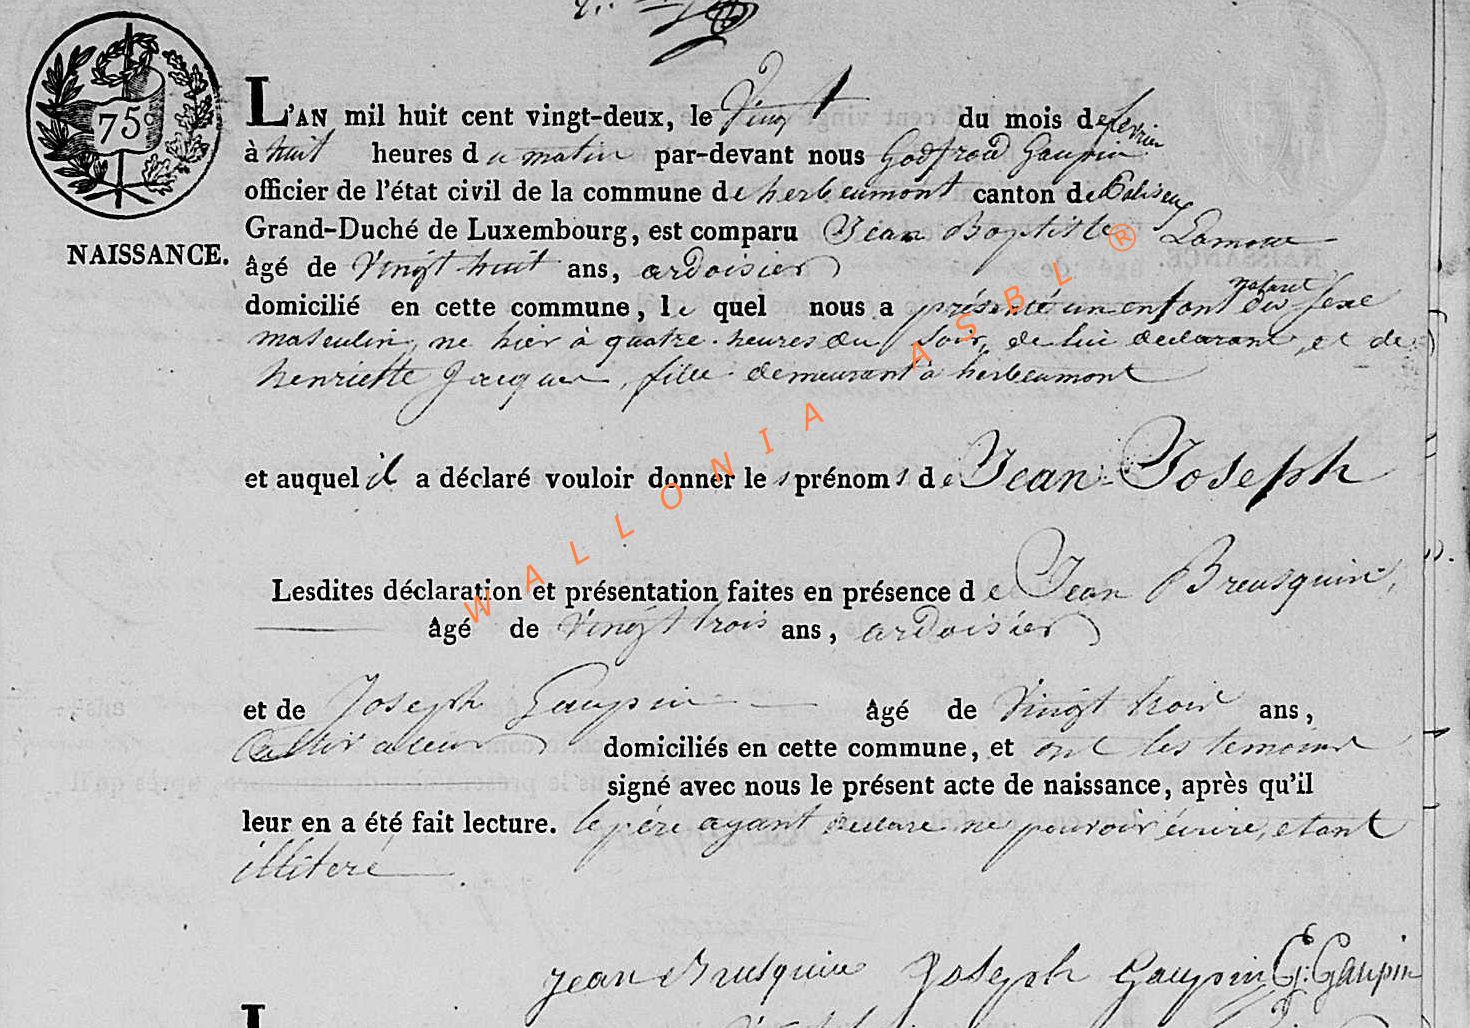 75c
NAISSANCE.
L'AN mil huit cent vingt-deux, le Vingt du mois de fevrier
à huit heures du matin par-devant nous Godfroid Gaupin
officier de l'état civil de la commune de herbeumont canton de
Grand-Duché de Luxembourg, est comparu Jean Baptiste Lamoue
âgé de Vingt huit ans, ardoisier
domicilié en cette commune, le quel nous a présenté un enfant naturel du sexe
masculin, ne hier à quatre heures du soir, de lui declarant, et de
henriette Jacques, fille demeurant à herbeumont
et auquel il a déclaré vouloir donner les prénoms de Jean-Joseph
Lesdites déclaration et présentation faites en présence de Jean Breusquin,
âgé de Vingt trois ans, ardoisier
et de Joseph Gaupin âgé de Vingt trois ans,
Cultivateur domiciliés en cette commune, et ont les temoins
signé avec nous le présent acte de naissance, après qu'il
leur en a été fait lecture. le père ayant declare ne pouvoir écrire, etant
illiteré
Jean Brusquin Joseph Gaupin G: Gaupin
WALLONIA ASBL ®